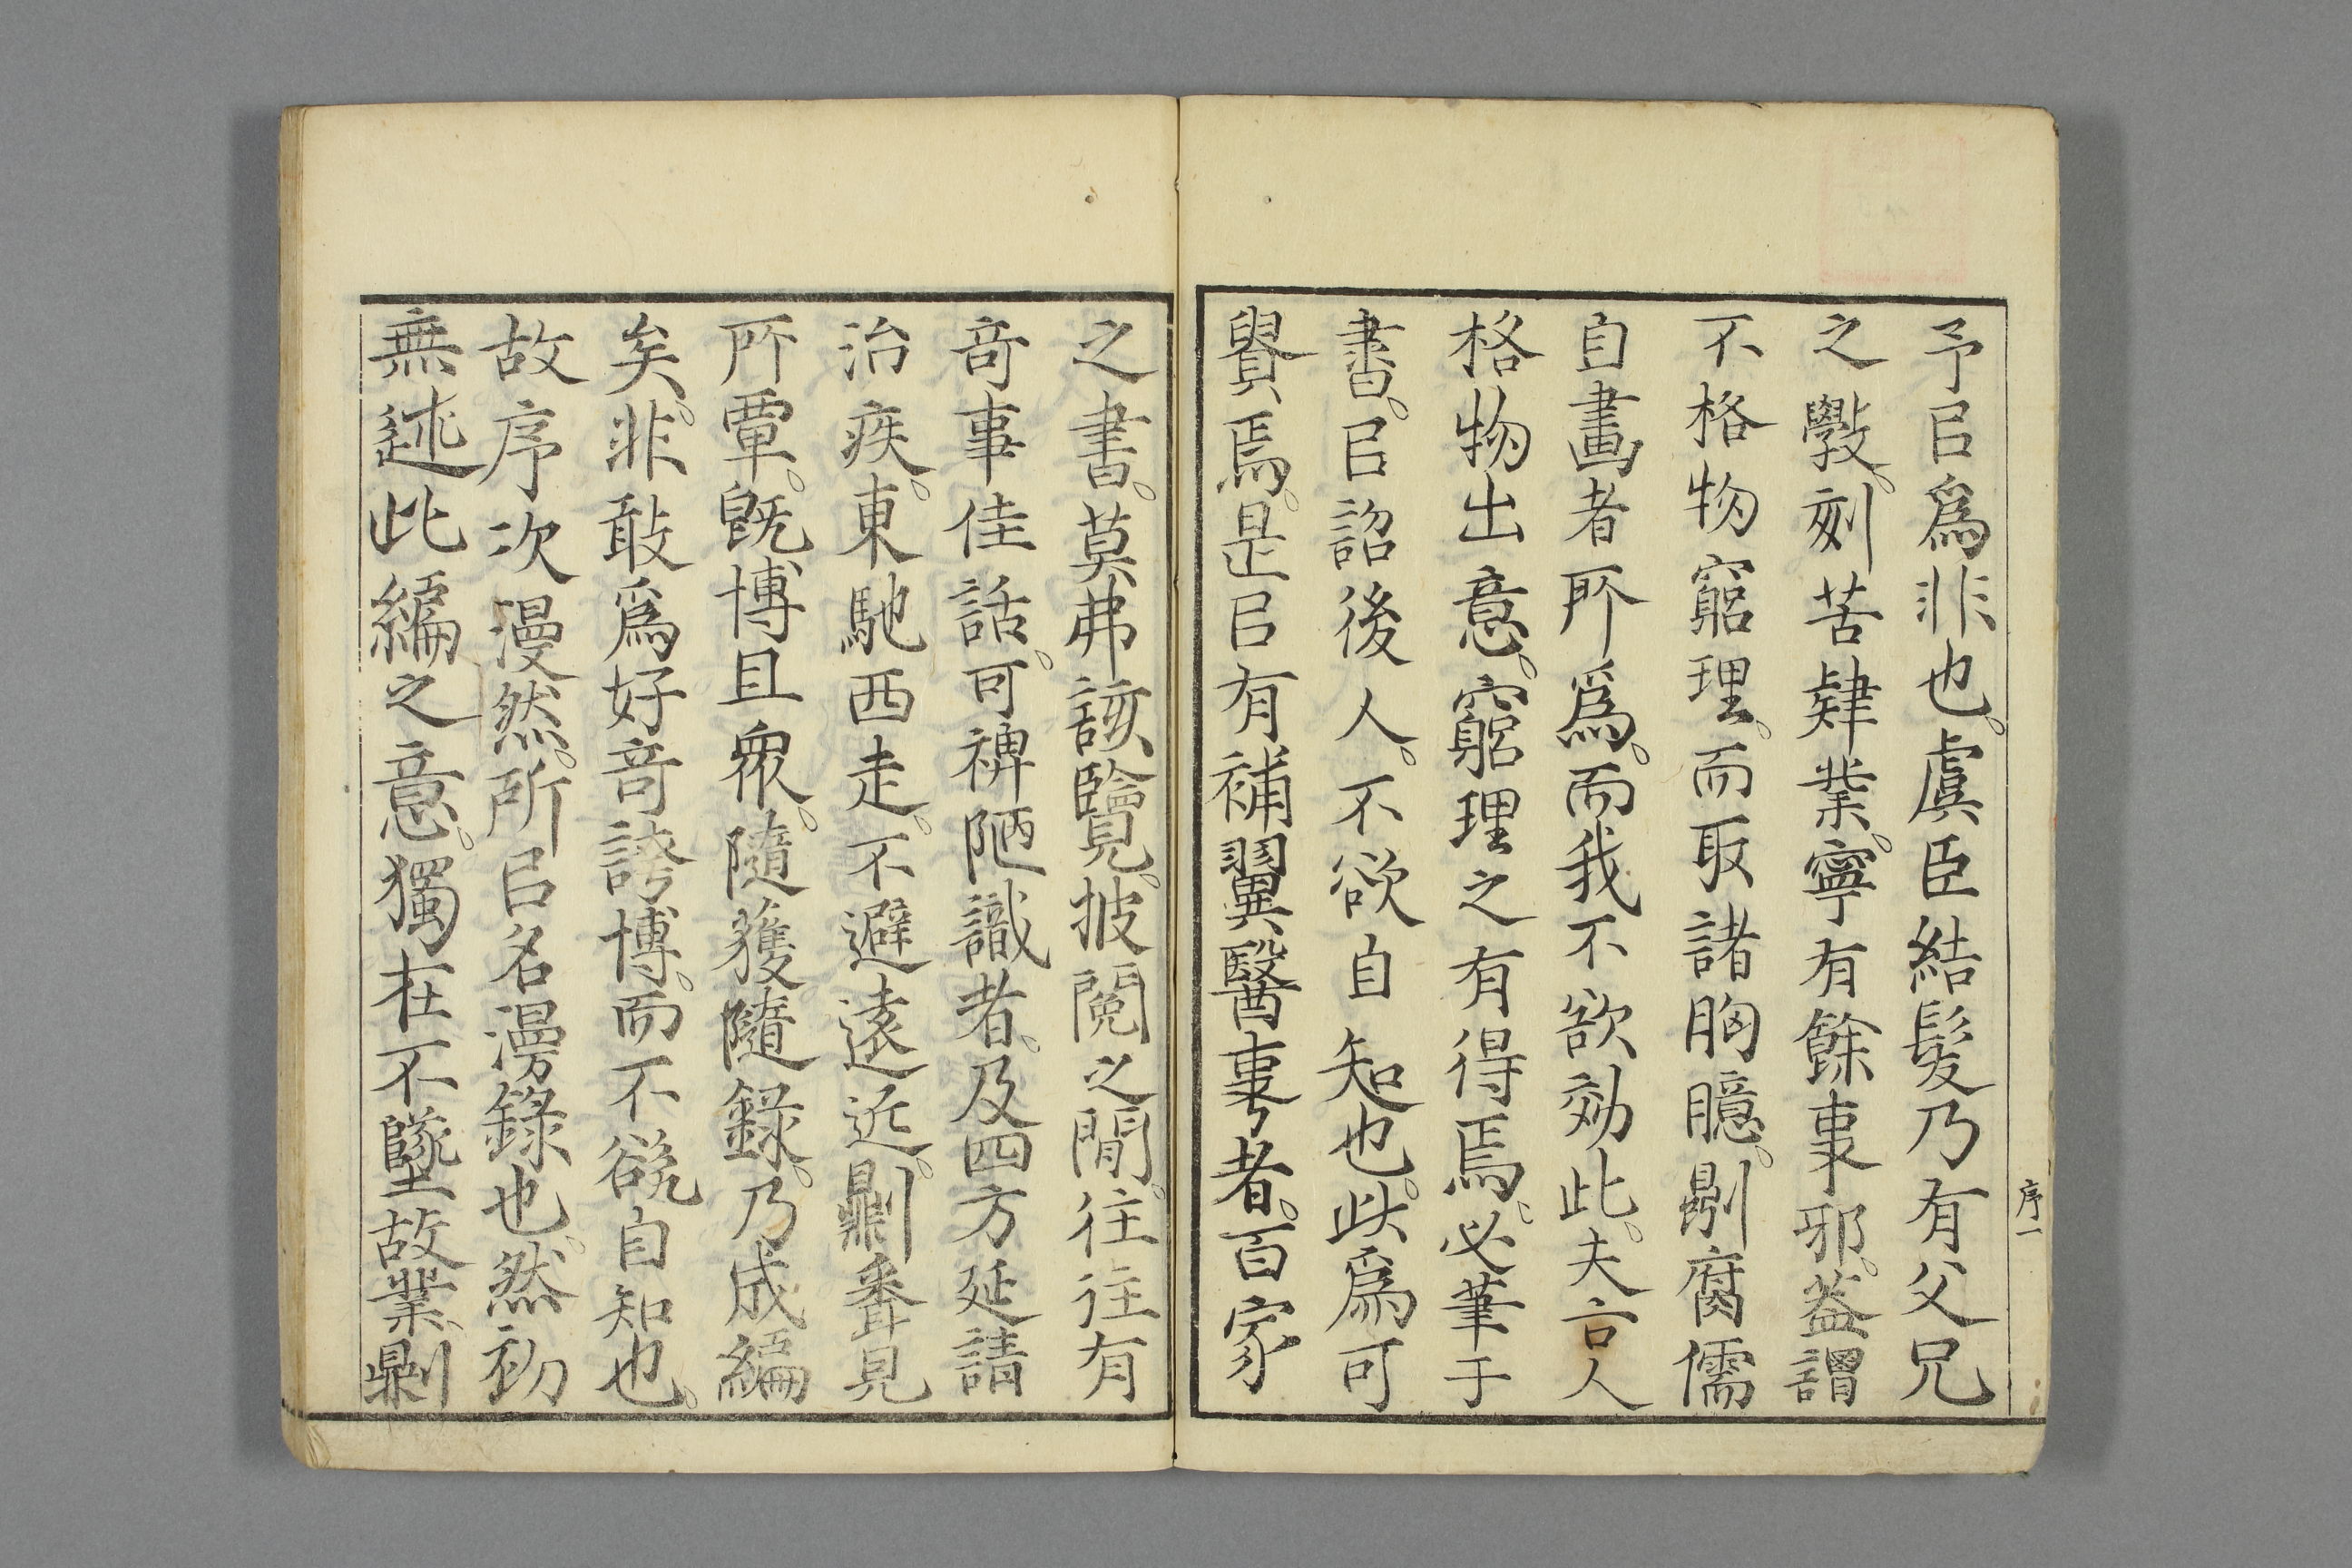 予㠯爲非也。虞臣結髮乃有父兄
之斆。刻苦肄業。寧有餘事邪。蓋謂
不格物窮理。而取諸胸臆。剔腐儒
自畫者所爲。而我不欲効此。夫古人
格物出意。窮理之有得焉。必筆于
書。㠯詔後人。不欲自知也。此爲可
貴焉。是㠯有補翼醫事者。百家
之書。莫弗該覽。披閱之間。往往有
奇事佳話。可裨陋識者。及四方延請
治疾。東馳西走。不避遠近。剿聋見
所覃。旣博且衆。隨獲隨錄。乃成編
矣。非敢爲好奇誇博。而不欲自知也。
故序次漫然。所㠯名漫錄也。然初
無述此編之意。獨在不墜故業。剿
序一